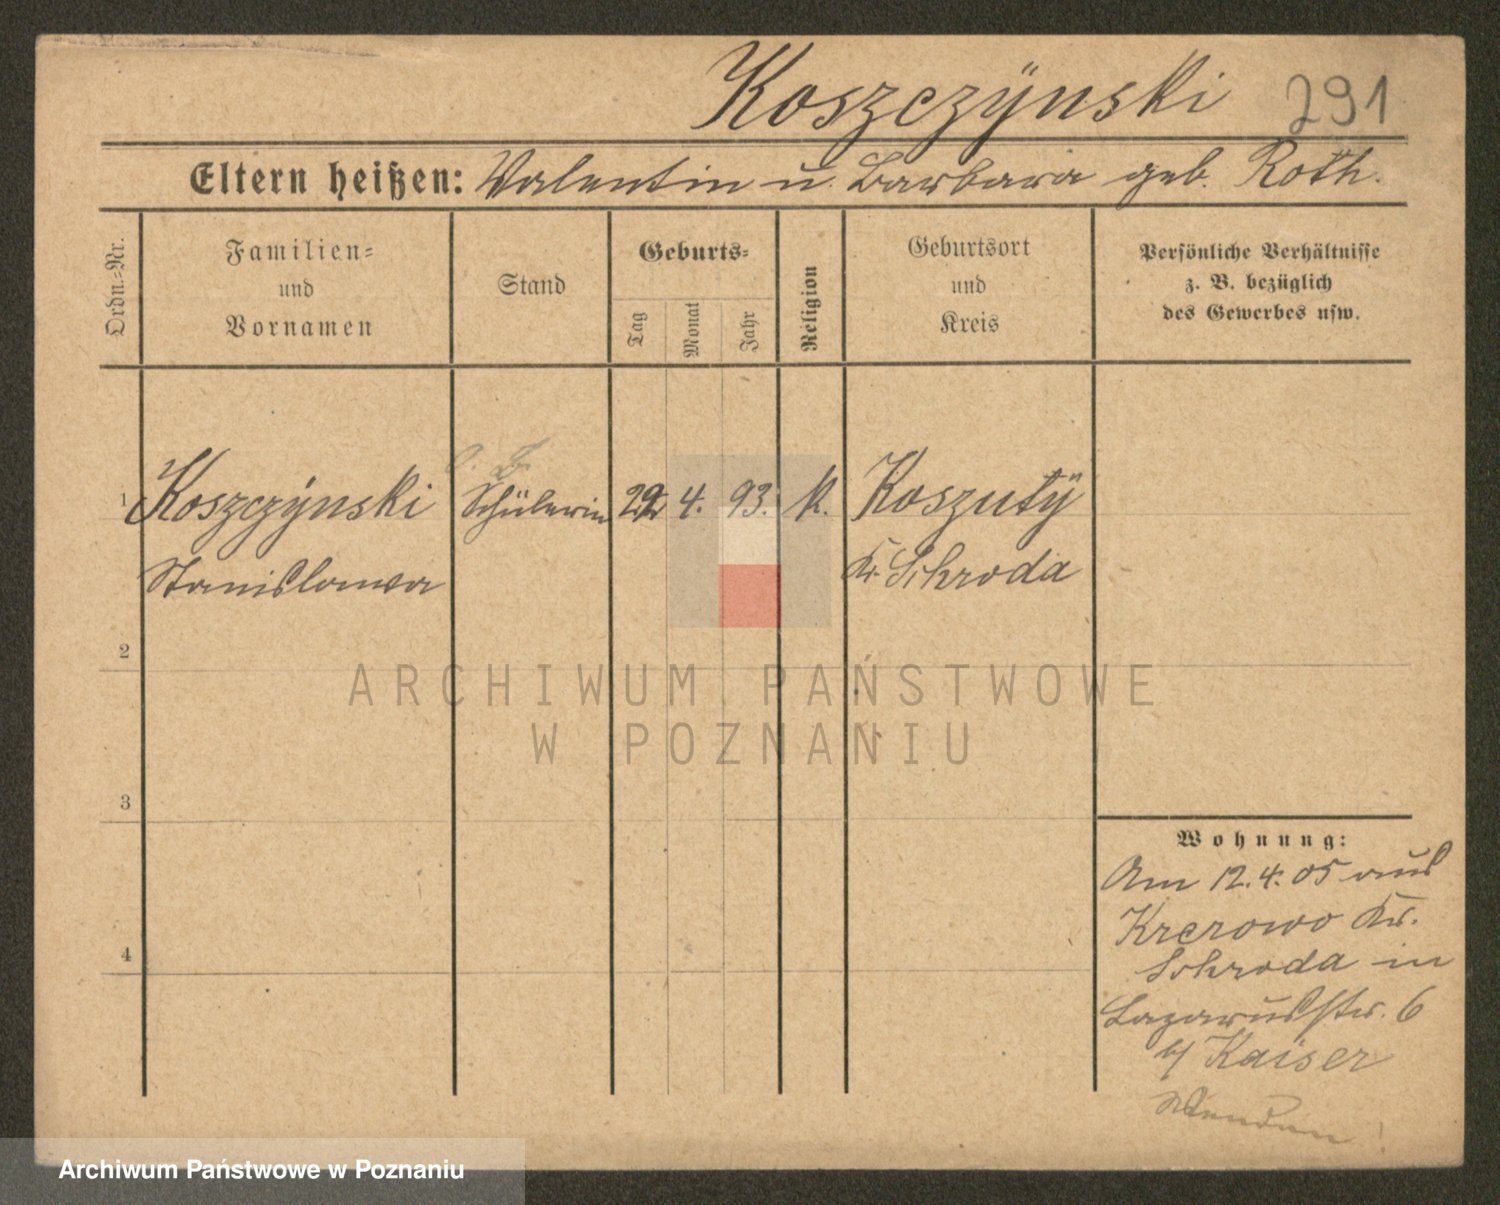 Koszczÿnski 291
Eltern heißen: Valentin u. Barbara geb. Roth.
Ordn.-Nr.
Familien-
und
Vornamen
Stand
Geburts-
Tag
Monat
Jahr
Religion
Geburtsort
und
Kreis
Persönliche Verhältnisse
z. B. bezüglich
des Gewerbes usw.
1 Koszczÿnski Schülerin 22 4. 93. k. Koszutÿ
Stanislawa Kr. Schroda
2
3
4
Wohnung:
Am 12.4.05 aus
Krerowo Kr.
Schroda in
Lazarusstr. 6
b/ Kaiser
Wenden!
ARCHIWUM PAŃSTWOWE
W POZNANIU
Archiwum Państwowe w Poznaniu